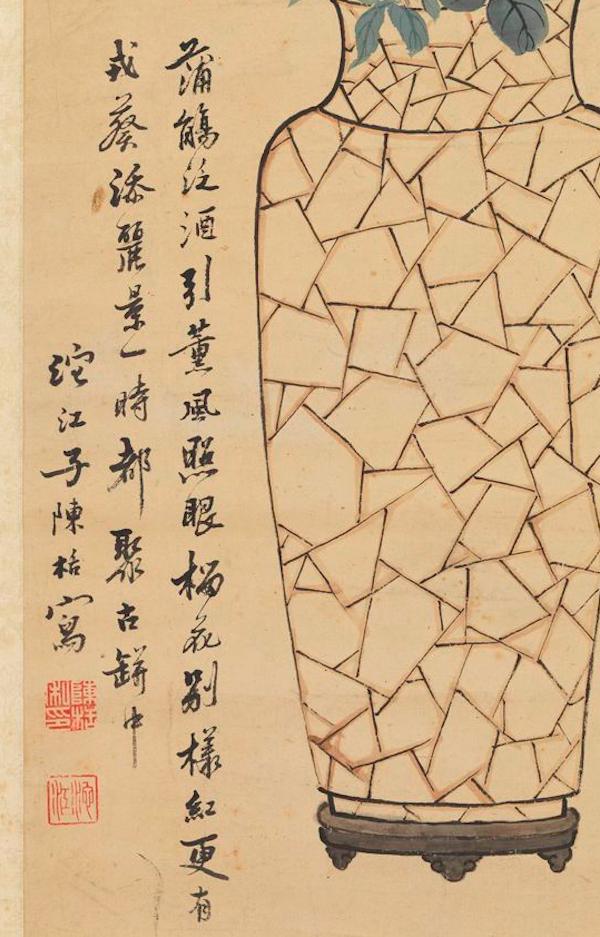 蒲觴泛酒引薰風照眼榴花別樣紅更有
戎葵添麗景一時都聚古缾中
沱江子陳栝寫
陳栝私印
沱江